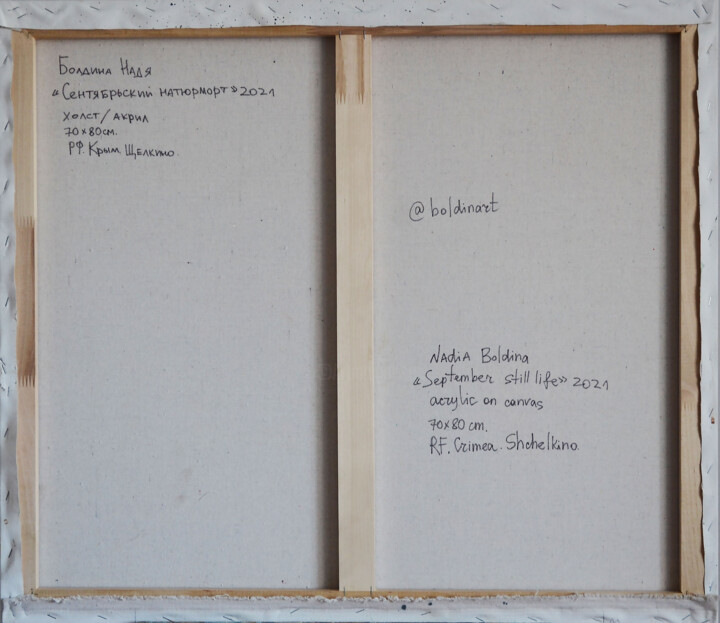 Болдина Надя
«Сентябрьский натюрморт» 2021
холст/акрил
70×80см.
РФ. Крым. Щелкино.
@boldinart
Nadia Boldina
«September still life» 2021
acrylic on canvas
70×80 cm.
RF. Crimea. Shchelkino.